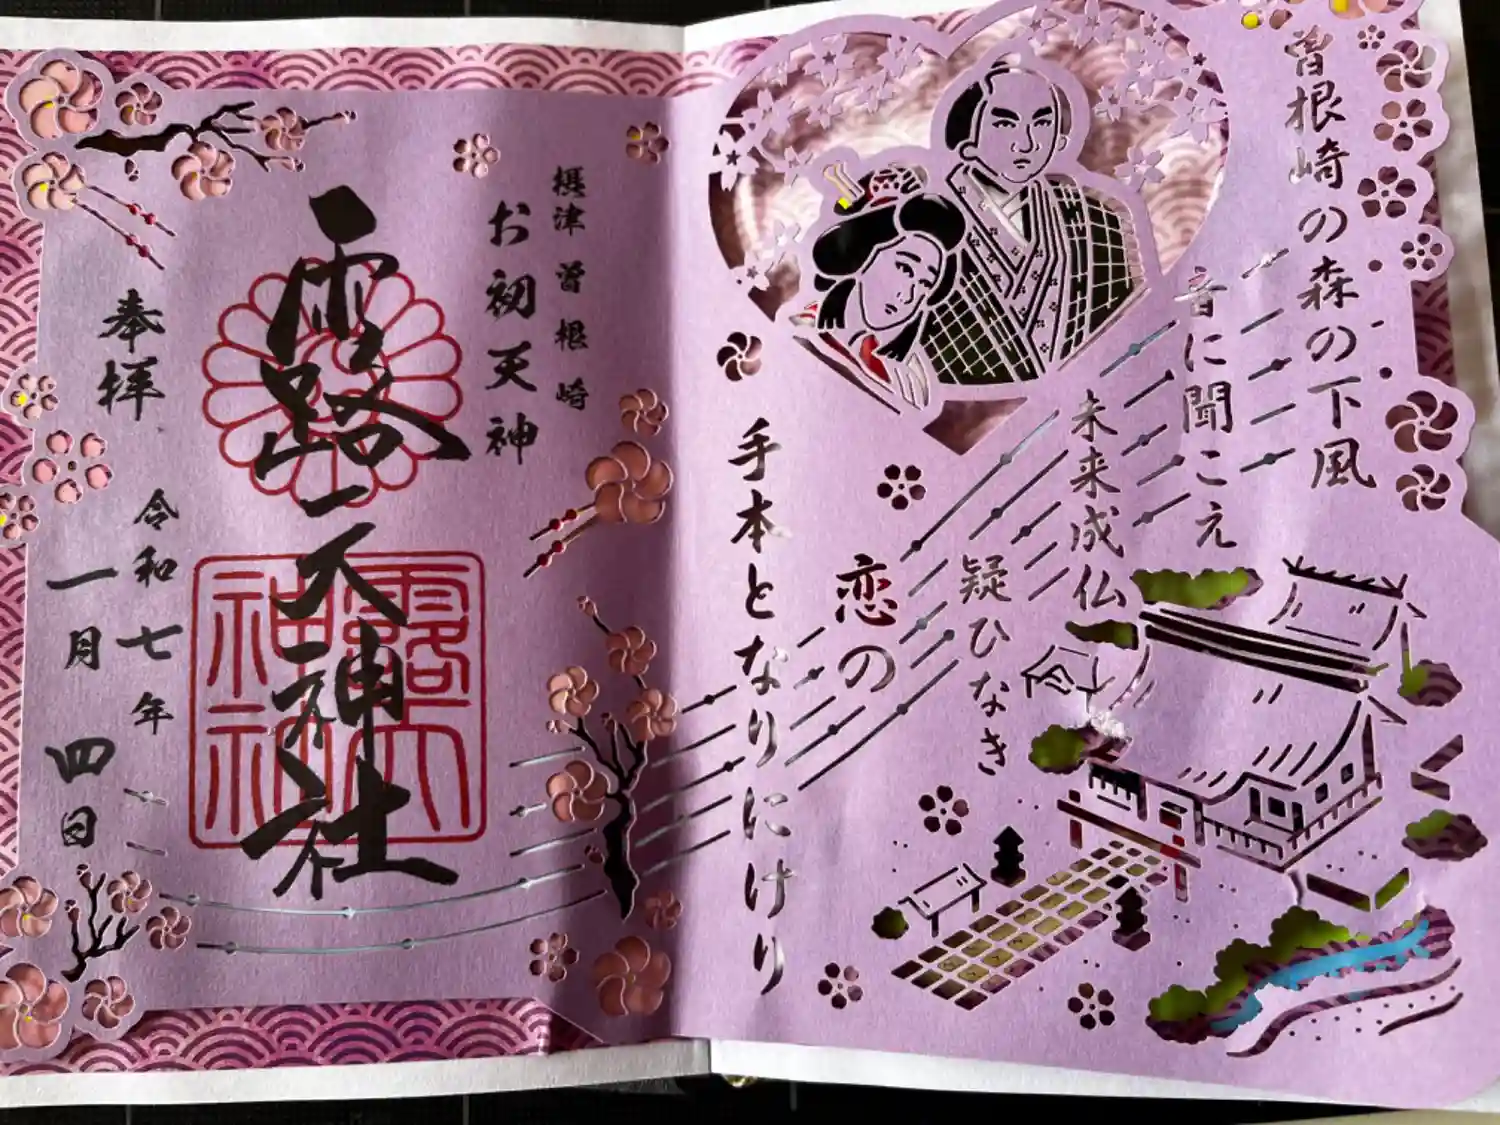 曽根崎の森の下風
音に聞こえ
未来成仏
疑ひなき
恋の
手本となりにけり
摂津 曽根崎
お初天神
露天神社
奉拝
令和七年
一月四日
露天
神社